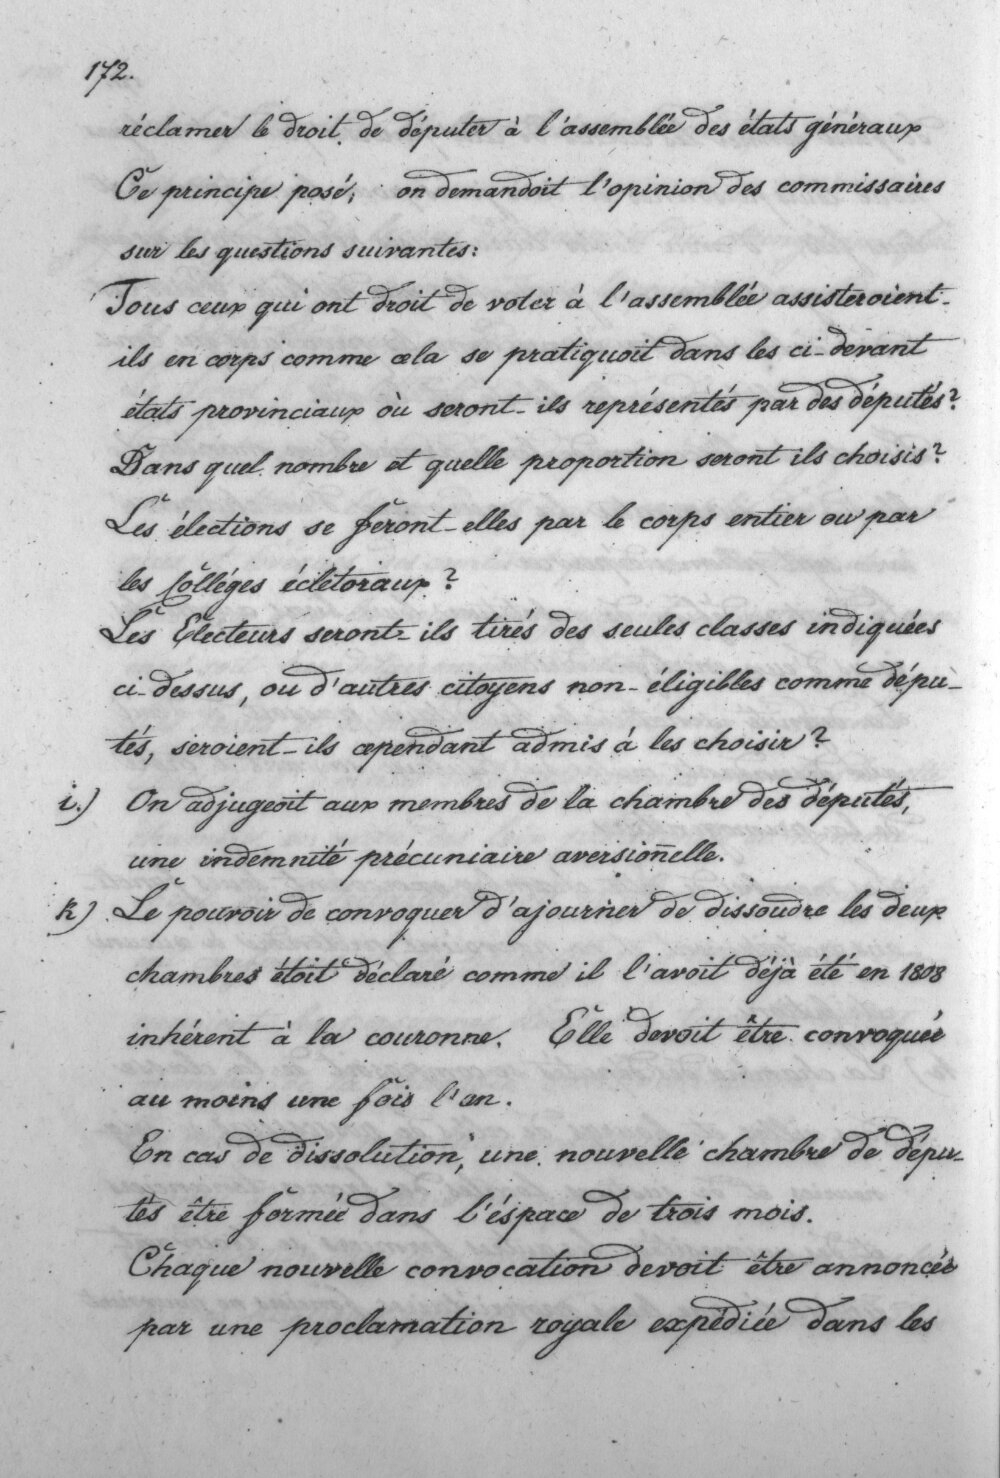 172.
réclamer le droit de députer à l'assemblée des états généraux
Ce principe posé, on demandoit l'opinion des commissaires
sur les questions suivantes:
Tous ceux qui ont droit de voter à l'assemblée assisteroient-
ils en corps comme cela se pratiquoit dans les ci-devant
états provinciaux où seront-ils représentés par des députés?
Dans quel nombre et quelle proportion seront ils choisis?
Les élections se feront-elles par le corps entier ou par
les Colléges écletoraux?
Les Electeurs seront-ils tirés des seules classes indiquées
ci-dessus, ou d'autres citoyens non-éligibles comme dépu-
tés, seroient-ils cependant admis à les choisir?
i.) On adjugeoit aux membres de la chambre des députés,
une indemnité précuniaire aversionelle.
k) Le pouvoir de convoquer d'ajourner de dissoudre les deux
chambres étoit déclaré comme il l'avoit déjà été en 1808
inhérent à la couronne. Elle devoit être convoquée
au moins une fois l'an.
En cas de dissolution, une nouvelle chambre de dépu-
tés être formée dans l'éspace de trois mois.
Chaque nouvelle convocation devoit être annoncée
par une proclamation royale expédiée dans les